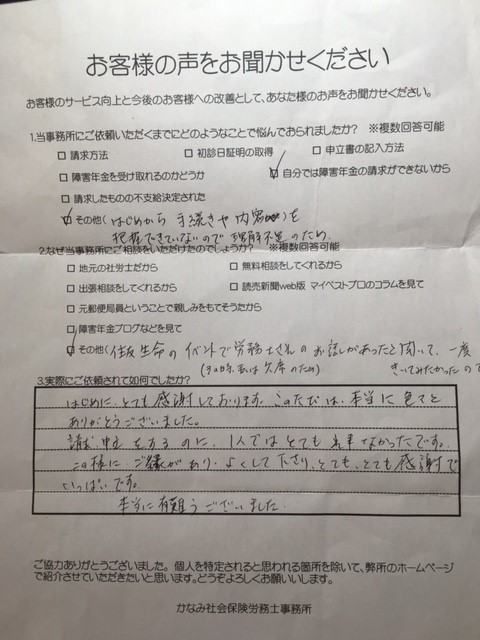 お客様の声をお聞かせください
お客様のサービス向上と今後のお客様への改善として、あなた様のお声をお聞かせください。
1.当事務所にご依頼いただくまでにどのようなことで悩んでおられましたか？ ※複数回答可能
□ 請求方法 □ 初診日証明の取得 □ 申立書の記入方法
□ 障害年金を受け取れるのかどうか ☑ 自分では障害年金の請求ができないから
□ 請求したものの不支給決定された
☑ その他（はじめから 手続きや内容を
把握できていないので 理解不足のため
2.なぜ当事務所にご相談をいただけたのでしょうか？ ※複数回答可能
□ 地元の社労士だから □ 無料相談をしてくれるから
□ 出張相談をしてくれるから □ 読売新聞web版 マイベストプロのコラムを見て
□ 元郵便局員ということで親しみをもてそうだから
□ 障害年金ブログなどを見て
☑ その他（住友生命のイベントで労務士さんのお話しがあったと聞いて、一度
（その時、私は欠席のため） きいてみたかったので
3.実際にご依頼されて如何でしたか？
はじめに、とても感謝しております。このたびは、本当に色々と
ありがとうございました。
請求 申立をするのに、1人ではとても出来なかったです。
この様に、ご縁があり、よくして下さり、とても、とても感謝で
いっぱいです。
本当に有難うございました。
ご協力ありがとうございました。個人を特定されると思われる箇所を除いて、弊所のホームページ
で紹介させていただきたいと思います。どうぞよろしくお願いいします。
かなみ社会保険労務士事務所